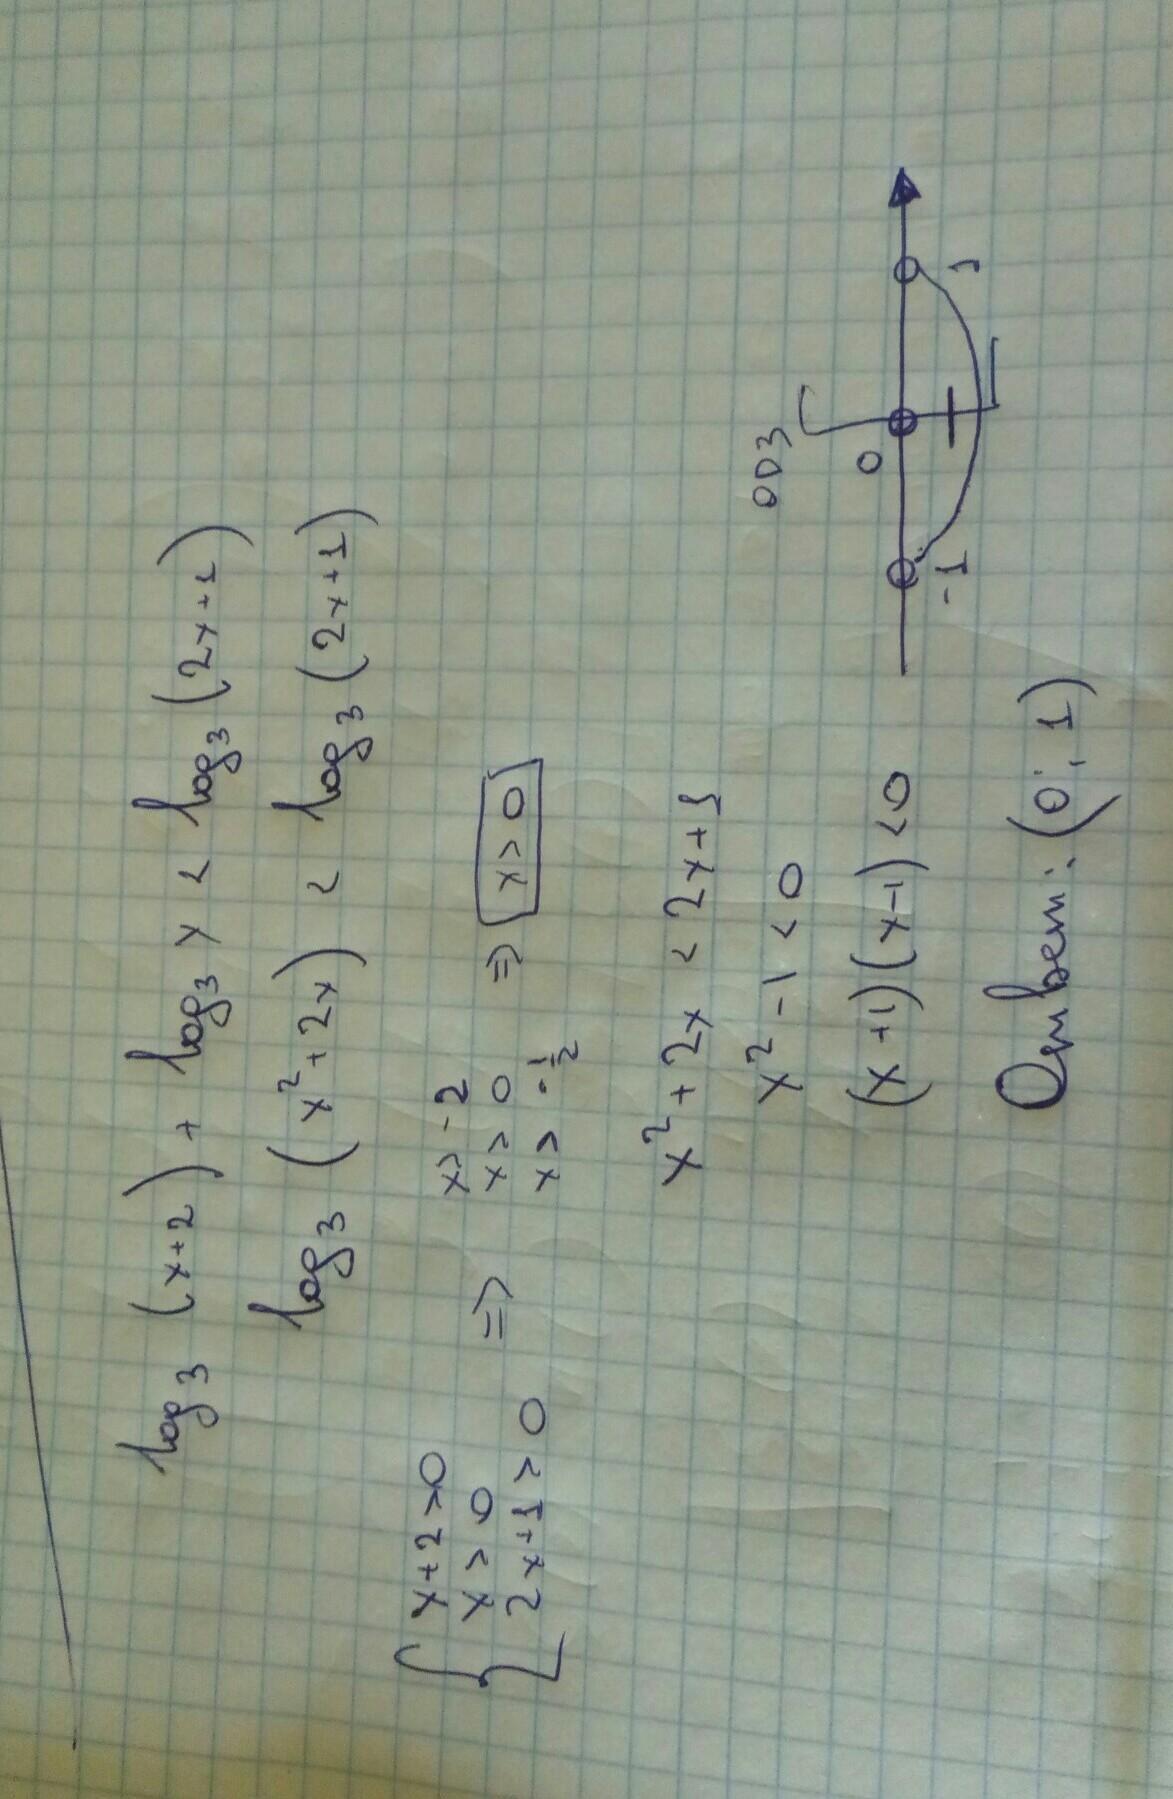 log₃ (x+2) + log₃ x < log₃ (2x+1)
log₃ (x²+2x) < log₃ (2x+1)
{ x+2>0 ⇒ x>-2
x>0 x>0 ⇒ x>0
2x+1>0 x>-½
x²+2x < 2x+1
x²-1<0
(x+1)(x-1)<0
ОДЗ
-1 0 1
−
Ответ: (0; 1)